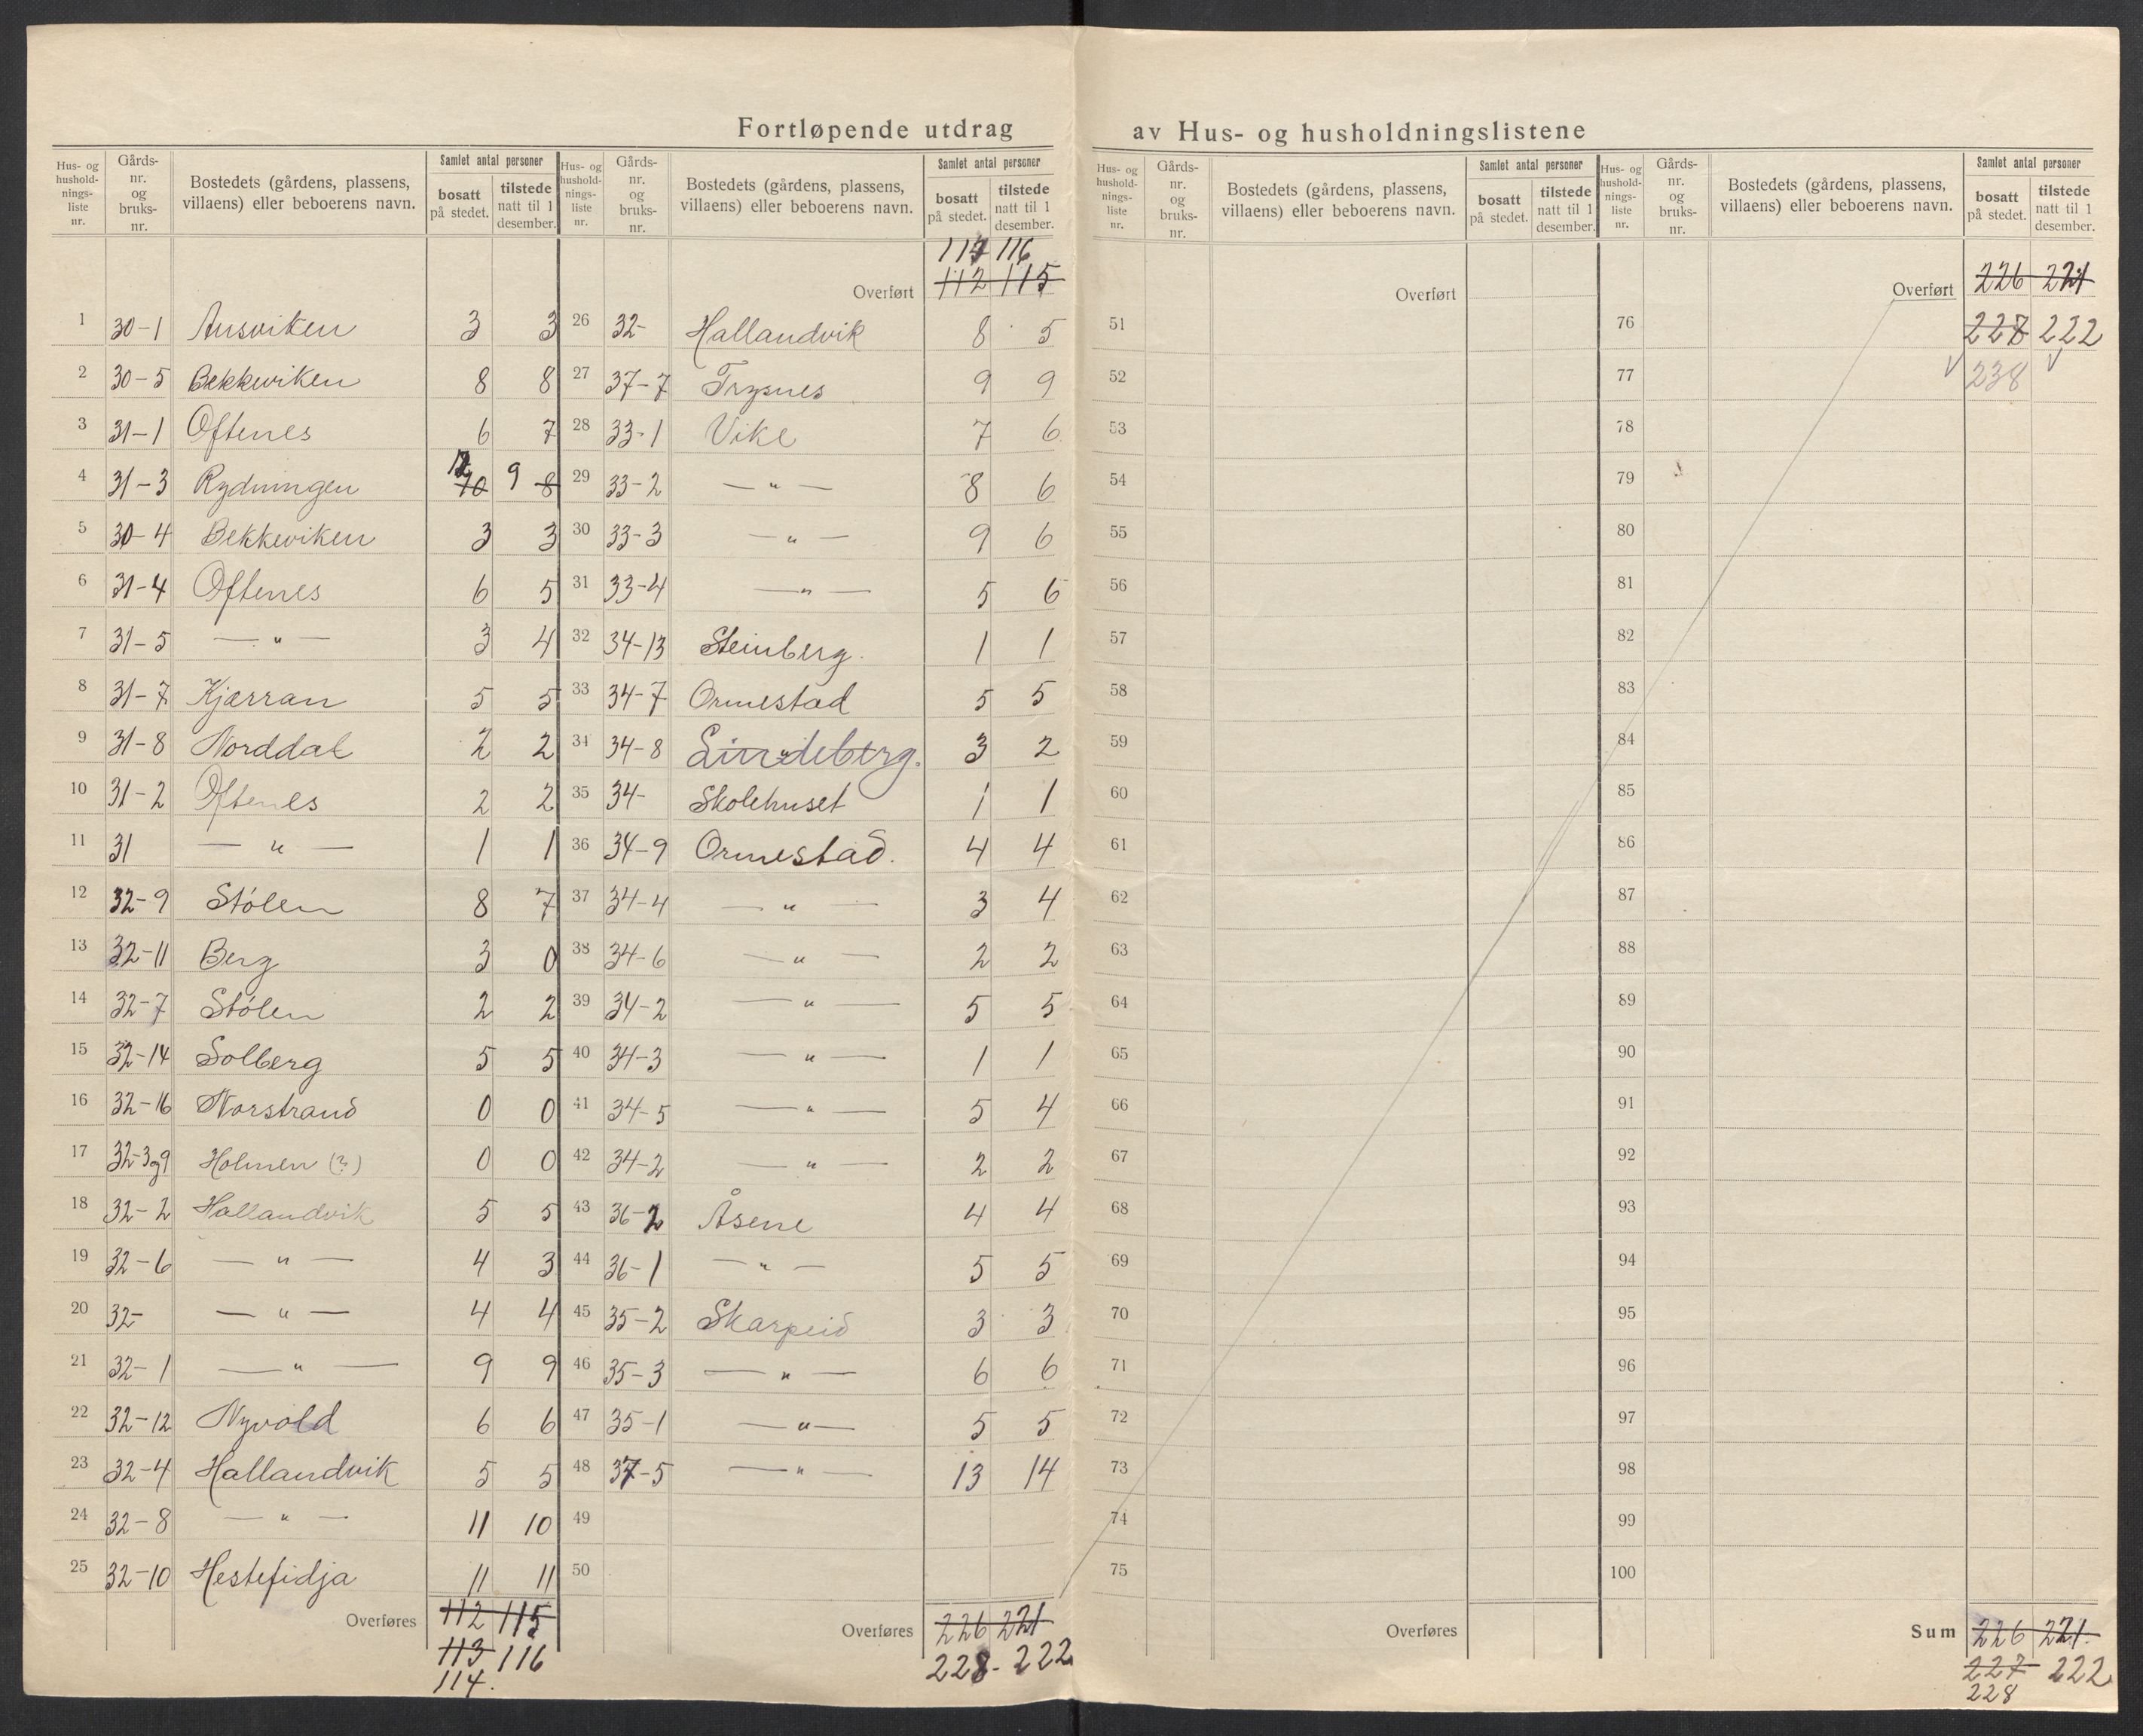 Fortløpende utdrag av Hus- og husholdningslistene
Hus- og husholdnings-liste nr. | Gårds-nr. og bruks-nr. | Bostedets (gårdens, plassens, villaens) eller beboerens navn. | Samlet antal personer | bosatt på stedet. | tilstede natt til 1 desember.
1 30-1 Ausviken 3 3
2 30-5 Bekkeviken 8 8
3 31-1 Oftenes 6 7
4 31-3 Rydningen 12 10 9 8
5 30-4 Bekkeviken 3 3
6 31-4 Oftenes 6 5
7 31-5 — " — 3 4
8 31-7 Kjærran 5 5
9 31-8 Norddal 2 2
10 31-2 Oftenes 2 2
11 31 — " — 1 1
12 32-9 Stölen 8 7
13 32-11 Berg 3 0
14 32-7 Stölen 2 2
15 32-14 Solberg 5 5
16 32-16 Norstrand 0 0
17 32-3og9 Holmen (?) 0 0
18 32-2 Hallandvik 5 5
19 32-6 — " — 4 3
20 32- — " — 4 4
21 32-1 — " — 9 9
22 32-12 Nyvold 6 6
23 32-4 Hallandvik 5 5
24 32-8 — " — 11 10
25 32-10 Hestefidja 11 11
Overføres 112 115
113 116
114.
Hus- og husholdnings-liste nr. | Gårds-nr. og bruks-nr. | Bostedets (gårdens, plassens, villaens) eller beboerens navn. | Samlet antal personer | bosatt på stedet. | tilstede natt til 1 desember.
114 116
Overført 112 115
26 32- Hallandvik 8 5
27 37-7 Trysnes 9 9
28 33-1 Vike 7 6
29 33-2 — " — 8 6
30 33-3 — " — 9 6
31 33-4 — " — 5 6
32 34-13 Steinberg. 1 1
33 34-7 Ormestad 5 5
34 34-8 Lindeberg. 3 2
35 34- Skolehuset 1 1
36 34-9 Ormestad. 4 4
37 34-4 — " — 3 4
38 34-6 — " — 2 2
39 34-2 — " — 5 5
40 34-3 — " — 1 1
41 34-5 — " — 5 4
42 34-2 — " — 2 2
43 36-2 Åsene 4 4
44 36-1 — " — 5 5
45 35-2 Skarpeid 3 3
46 35-3 — " — 6 6
47 35-1 — " — 5 5
48 37-5 — " — 13 14
49
50
Overføres 226 221
228- 222
Hus- og husholdnings-liste nr. | Gårds-nr. og bruks-nr. | Bostedets (gårdens, plassens, villaens) eller beboerens navn. | Samlet antal personer | bosatt på stedet. | tilstede natt til 1 desember.
Overført
51
52
53
54
55
56
57
58
59
60
61
62
63
64
65
66
67
68
69
70
71
72
73
74
75
Overføres
Hus- og husholdnings-liste nr. | Gårds-nr. og bruks-nr. | Bostedets (gårdens, plassens, villaens) eller beboerens navn. | Samlet antal personer | bosatt på stedet. | tilstede natt til 1 desember.
Overført 226 221
76 228 222
77 238
78
79
80
81
82
83
84
85
86
87
88
89
90
91
92
93
94
95
96
97
98
99
100
Sum 226 221.
227 222
228